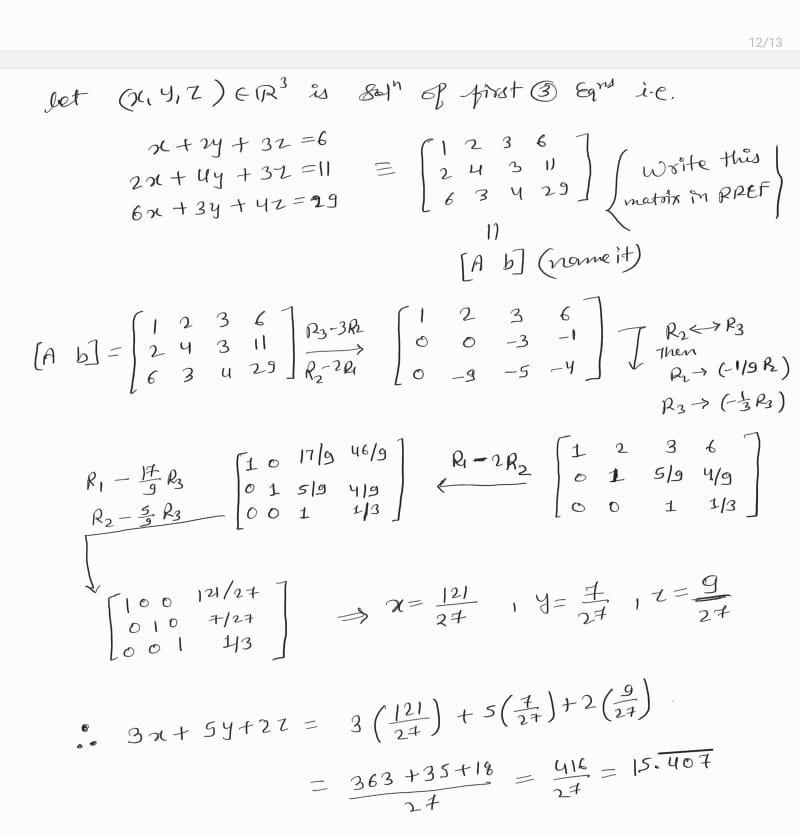 12/13
let (x, y, z) ∈ ℝ³ is solⁿ of first ③ Eqⁿˢ i.e.
x + 2y + 3z = 6
2x + 4y + 3z = 11
6x + 3y + 4z = 29
≡ [1 2 3 6
2 4 3 11
6 3 4 29]
{Write this
matrix in RREF}
||
[A b] (name it)
[A b] = [1 2 3 6
2 4 3 11
6 3 4 29]
R3-3R2
→
R2-2R1
[1 2 3 6
0 0 -3 -1
0 -9 -5 -4]
R2↔R3
Then
R2→(-1/9 R2)
R3→(-1/3 R3)
[1 2 3 6
0 1 5/9 4/9
0 0 1 1/3]
R1-2R2
←
[1 0 17/9 46/9
0 1 5/9 4/9
0 0 1 1/3]
R1 - 17/9 R3
R2 - 5/9 R3
[1 0 0 121/27
0 1 0 7/27
0 0 1 1/3]
⇒ x = 121/27 , y = 7/27 , z = 9/27
∴ 3x + 5y + 2z = 3(121/27) + 5(7/27) + 2(9/27)
= 363 + 35 + 18 / 27 = 416/27 = 15.4̅0̅7̅